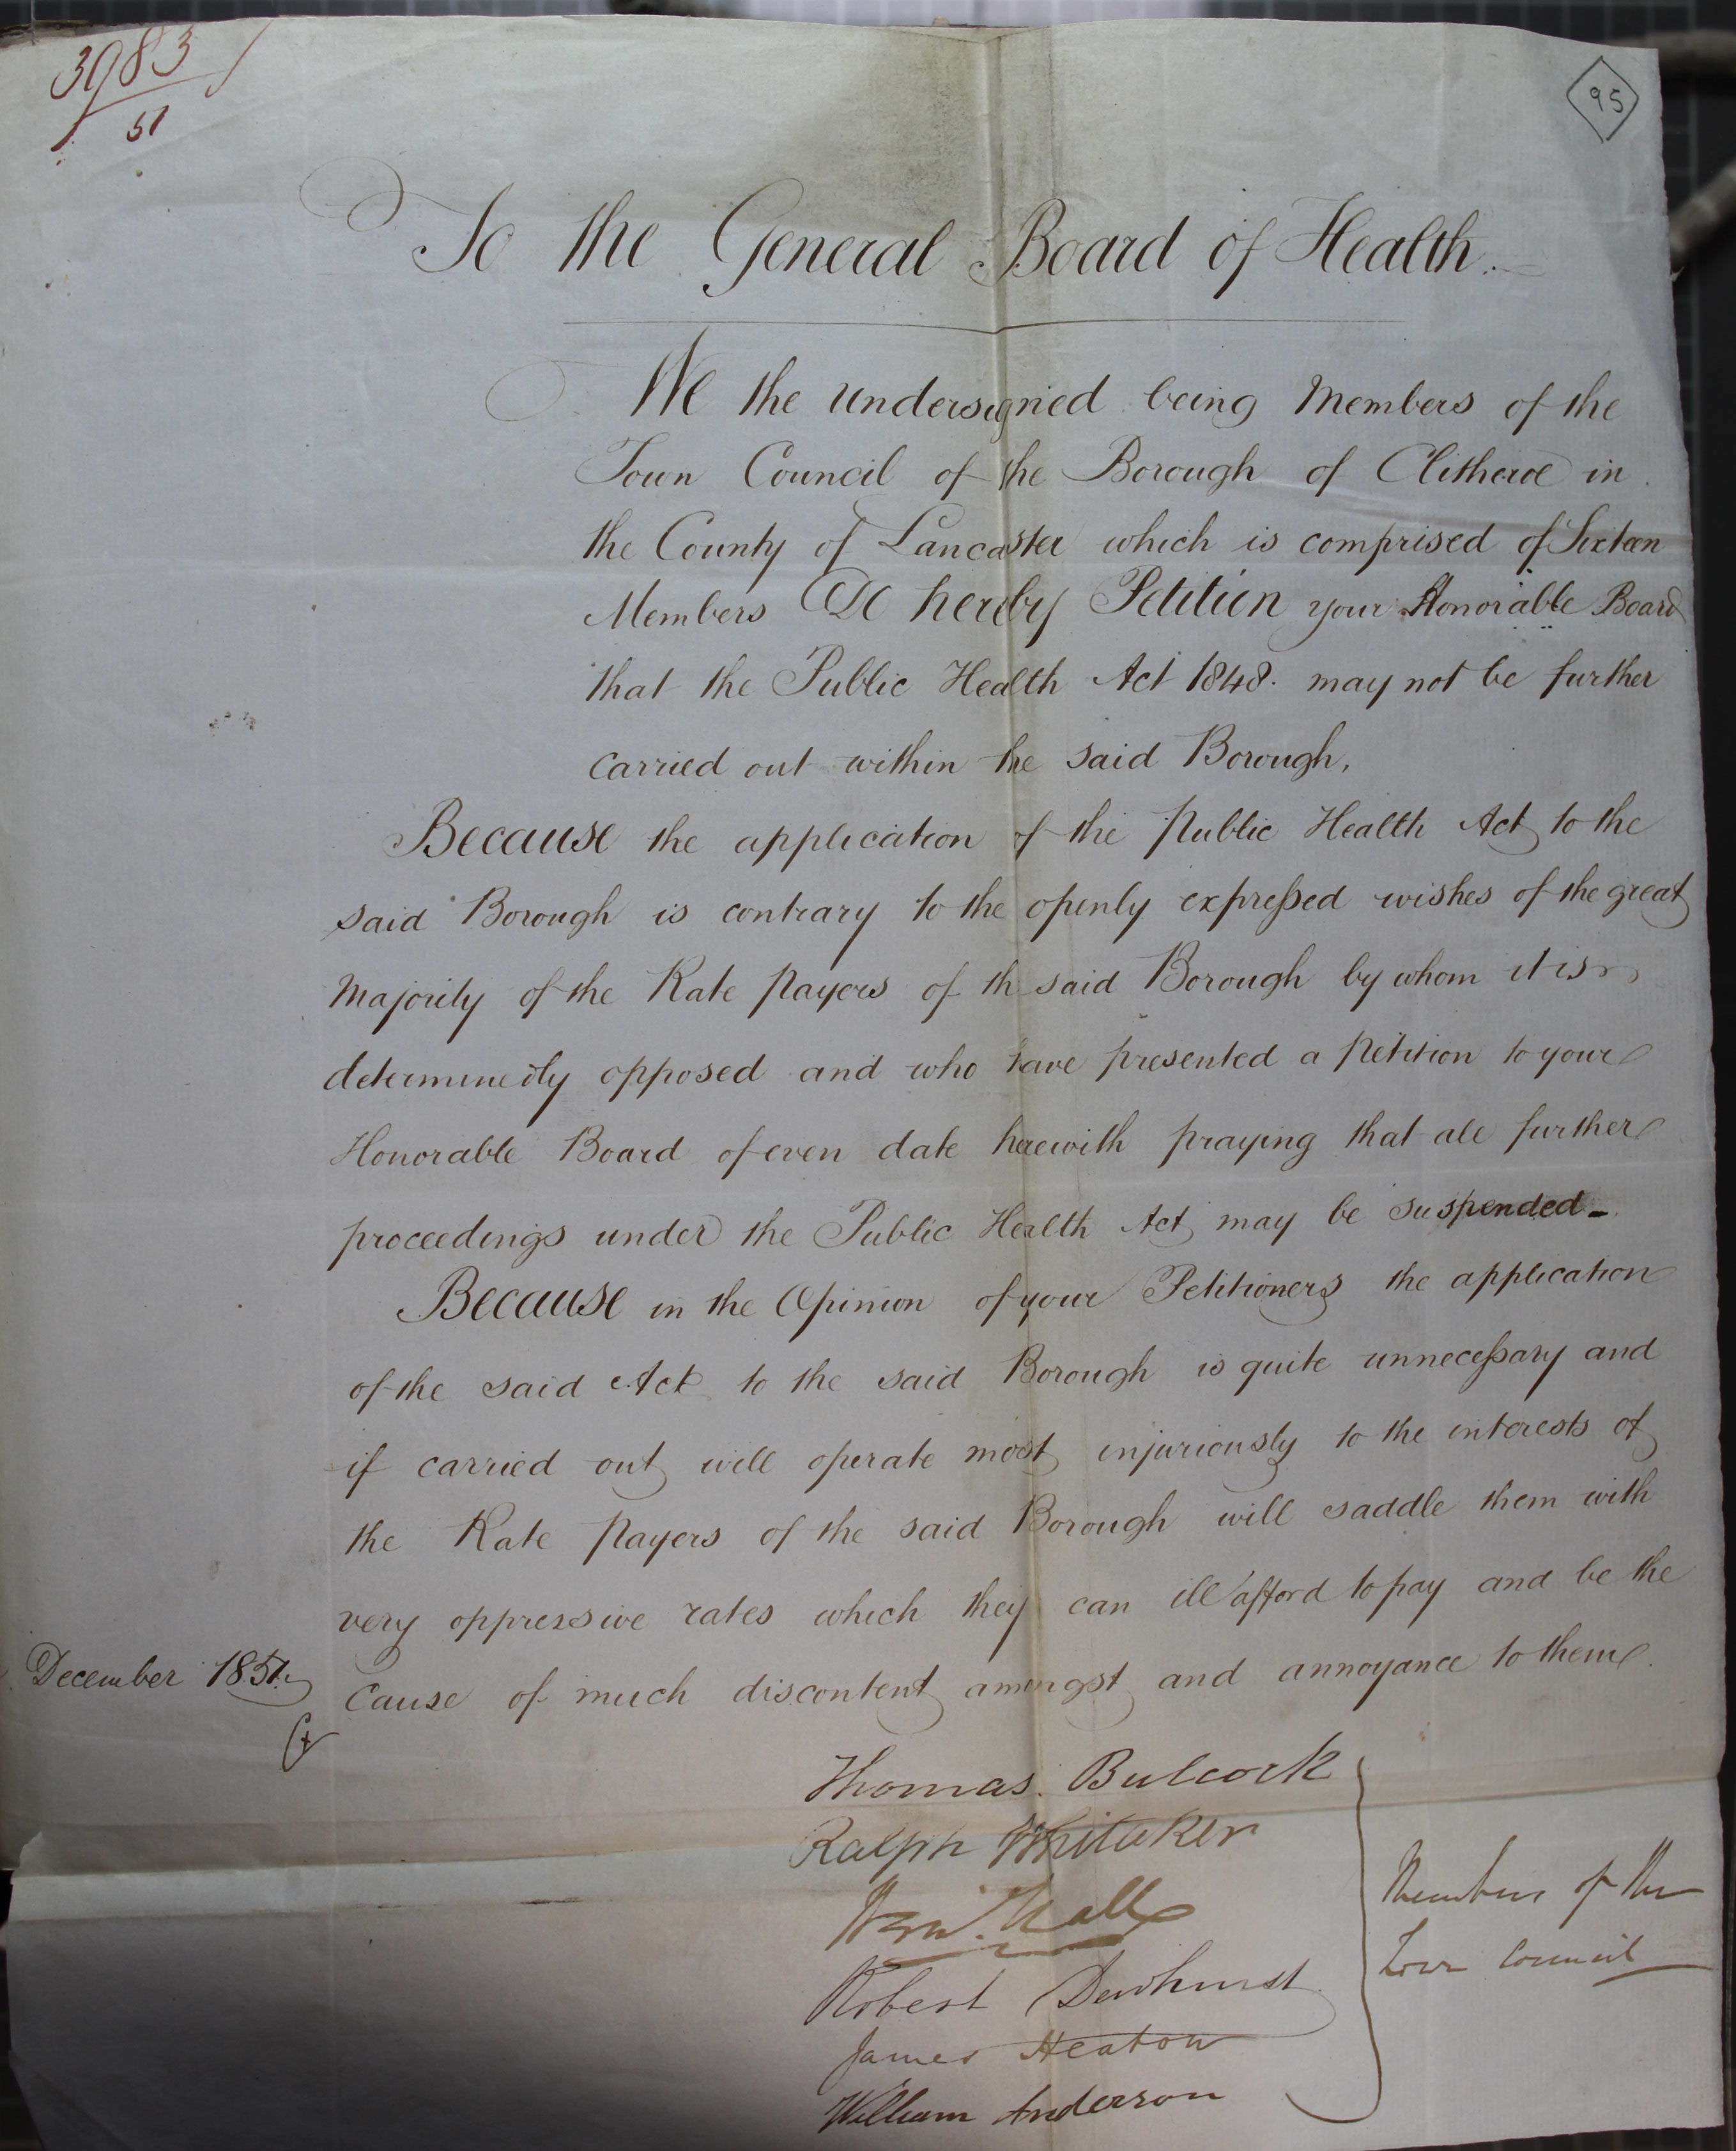 3983
51
95
To the General Board of Health.
We the undersigned being Members of the
Town Council of the Borough of Clitheroe in
the County of Lancaster which is comprised of Sixteen
Members Do hereby Petition your Honorable Board
that the Public Health Act 1848. may not be further
carried out within the said Borough,
Because the application of the Public Health Act to the
said Borough is contrary to the openly expressed wishes of the great
Majority of the Rate Payers of th said Borough by whom it is
determinedly opposed and who have presented a Petition to your
Honorable Board of even date herewith praying that all further
proceedings under the Public Health Act may be suspended_
Because in the Opinion of your Petitioners the application
of the said Act to the said Borough is quite unnecessary and
if carried out will operate most injuriously to the interests of
the Rate Payers of the said Borough will saddle them with
very oppressive rates which they can ill afford to pay and be the
December 1851.
Cause of much discontent amongst and annoyance to them.
Thomas Bulcock
Ralph Whitaker
Wm. Hall
Robert Dewhurst
James Heaton
William Anderson
Members of the
Town Council